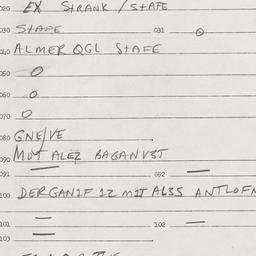 020 EX STRANK / STAFE
030 STAFE 031 0
040 ALMER OGL STAFE
050 0
060 0
070 0
080 GNE/VE
090 MUT ALEZ BAGANVST
091 — 092 =
100 DERGANIF 12 MIT ALSS ANTLOFN
101 = 102 —
103 =